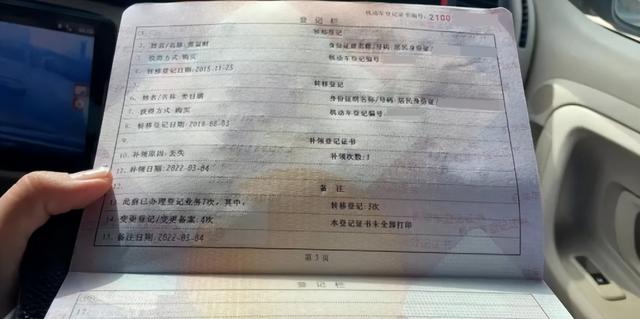 机动车登记证书编号: 2100
登记栏
1. 转移登记
2. 姓名/名称: 身份证明名称/号码: 居民身份证/
3. 获得方式: 购买 机动车登记编号
4. 转移登记日期: 2015-11-25
5. 转移登记
6. 姓名/名称: 身份证明名称/号码: 居民身份证/
7. 获得方式: 购买 机动车登记编号
8. 转移登记日期: 2018-08-03
9. 补领登记证书
10. 补领原因: 丢失 补领次数: 1
11. 补领日期: 2022-03-04
12. 备注
13. 此前已办理登记业务7次, 其中, 转移登记: 3次
14. 变更登记/变更备案: 4次 本登记证书未全部打印
15. 备注日期: 2022-03-04
第 3 页
登记栏